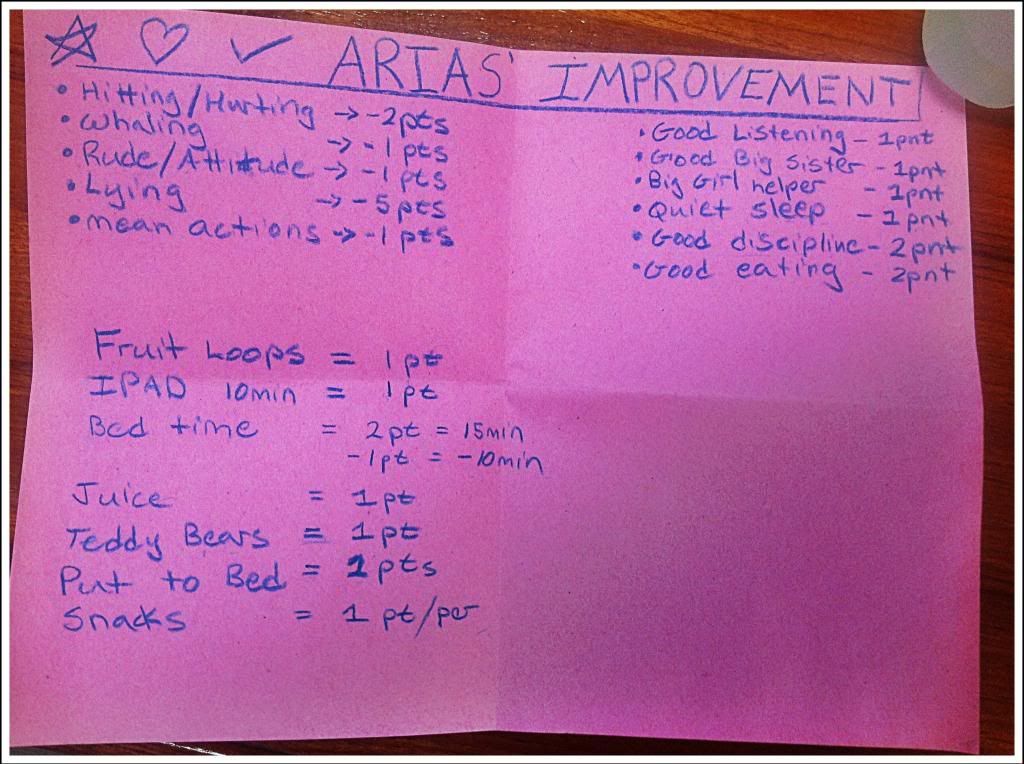 ARIAS' IMPROVEMENT
• Hitting/Hurting -> -2pts
• whaling -> -1 pts
• Rude/Attitude -> -1 pts
• Lying -> -5 pts
• mean actions -> -1 pts
• Good Listening - 1pnt
• Good Big Sister - 1pnt
• Big Girl helper - 1pnt
• Quiet sleep - 1pnt
• Good discipline - 2pnt
• Good eating - 2pnt
Fruit Loops = 1 pt
IPAD 10min = 1pt
Bed time = 2pt = 15min
-1pt = -10min
Juice = 1pt
Teddy Bears = 1pt
Put to Bed = 1pts
Snacks = 1 pt/per